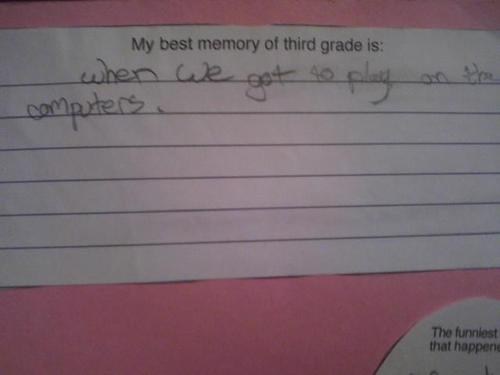 My best memory of third grade is:
when we got to play on the
computers.
The funniest
that happene